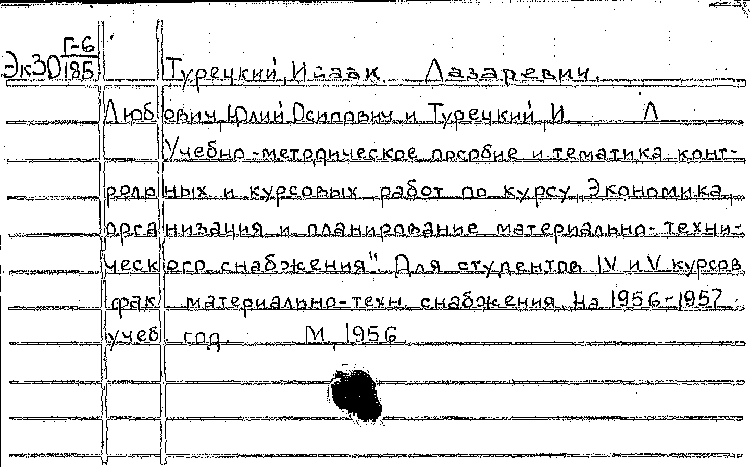 Эк30 Г-6/185 Турецкий, Исаак Лазаревич.
Любович, Юлий Осипович и Турецкий, И Л
Учебно-методическое пособие и тематика конт-
рольных и курсовых работ по курсу „Экономика,
организация и планирование материально-техни-
ческого снабжения" Для студентов IV и V курсов
фак материально-техн. снабжения на 1956-1957
учеб год. М, 1956